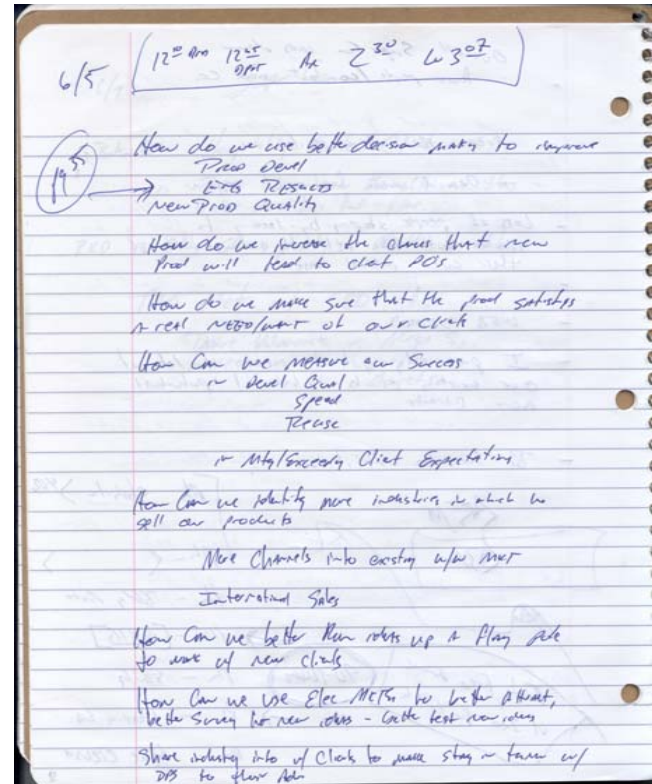 6/5
12 00 12 05 Dpt Ar 2 30 3 07
19 55
How do we use better decision making to improve
Prod Devel
Results
New Prod Quality
How do we increase the that new
Prod will lead to client PO's
How do we make sure that the prod satisfies
A real NEED/WANT of our clients
How Can we measure our Success
in Devel Qual
Speed
Reuse
in Mtg/Exceeding Client Expectations
How Can we identify more industries in which to
sell our products
More Channels into existing MKT
International Sales
How Can we better Run ideas up A flag pole
to work w/ new clients
How Can we Use Elec to better Attract,
better Survey for new ideas - better test new ideas
Share industry info w/ Clients to make stay in w/
to their